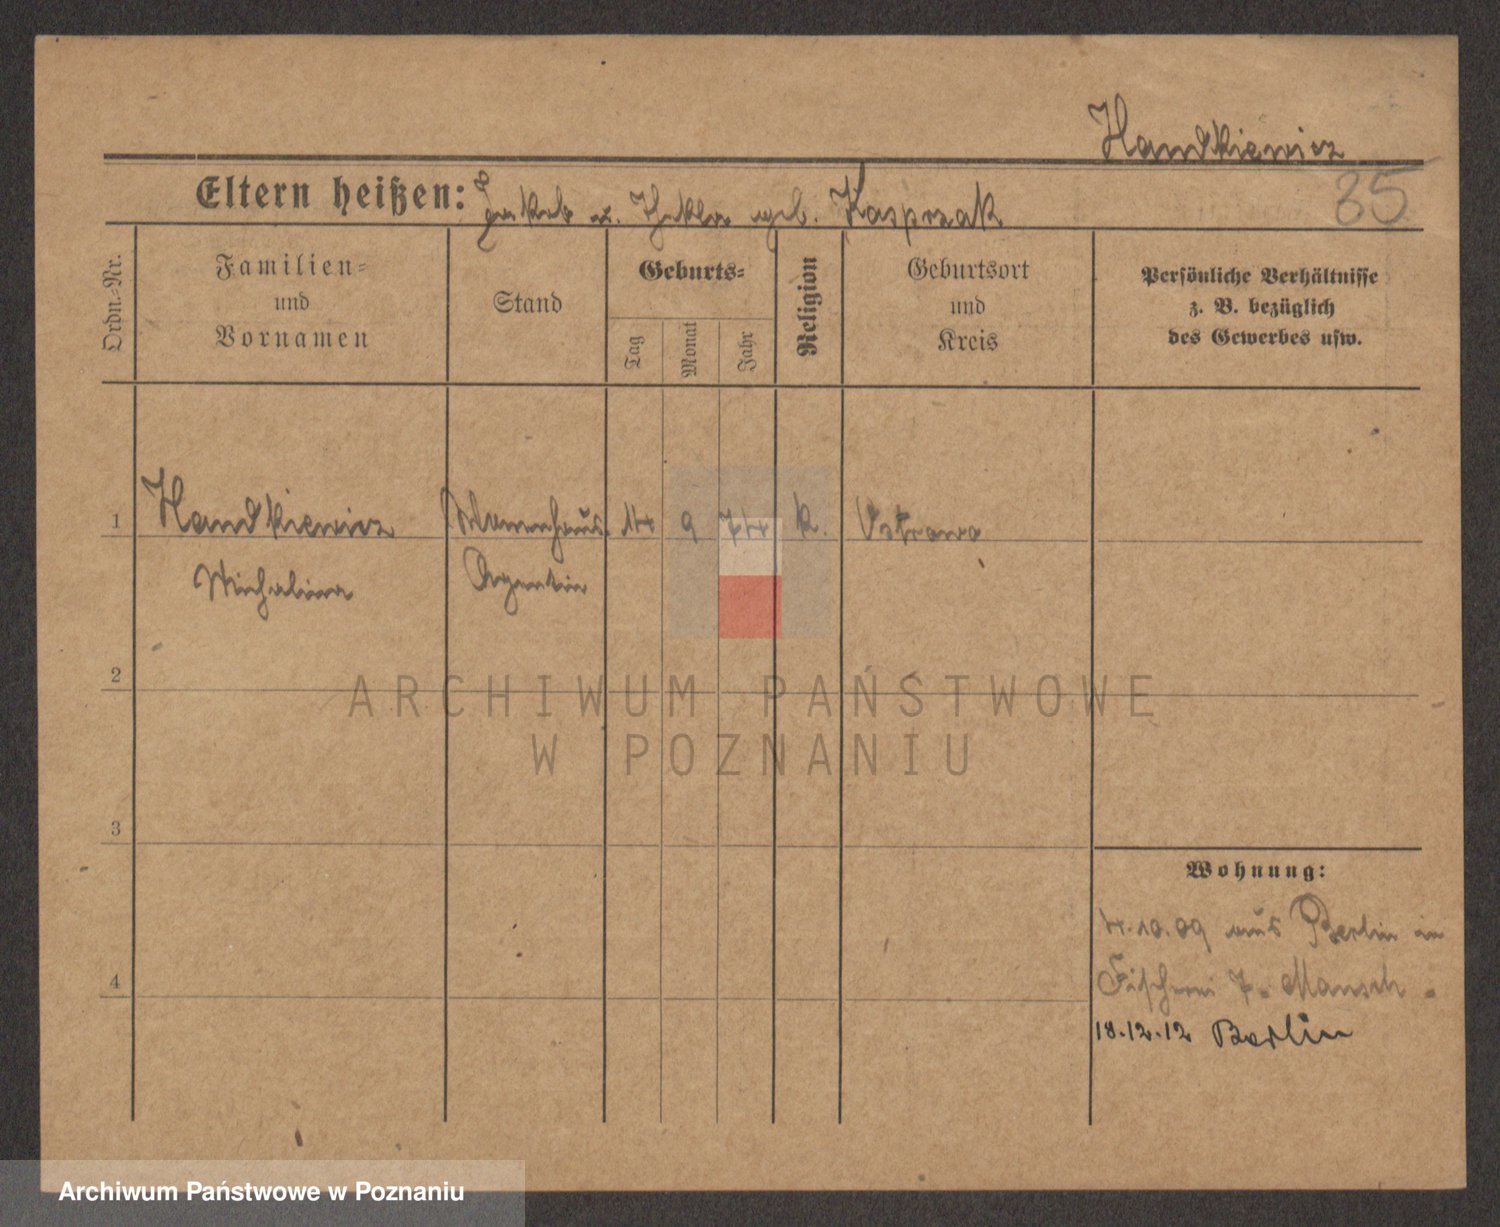 Handkiewicz
Eltern heißen: Jakob u. Thekla geb. Kasprzak
35
Ordn.-Nr.
Familien-
und
Vornamen
Stand
Geburts-
Tag
Monat
Jahr
Religion
Geburtsort
und
Kreis
Persönliche Verhältnisse
z. B. bezüglich
des Gewerbes usw.
1 Handkiewicz 14 9 74 k. Ostrowo
Michalina Agentin
2
ARCHIWUM PAŃSTWOWE
W POZNANIU
3
Wohnung:
4.10.09 aus Berlin in
Fischerei 7.
4
18.12.12 Berlin
Archiwum Państwowe w Poznaniu